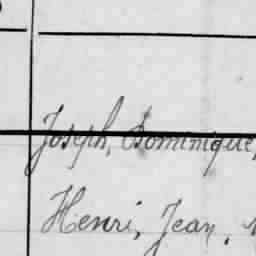 Joseph, Dominique,
Henri, Jean,